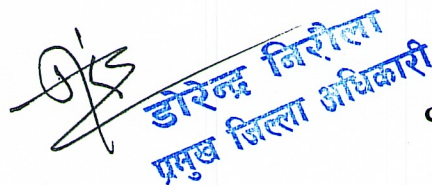 डोरेन्द्र निरौला
प्रमुख जिल्ला अधिकारी